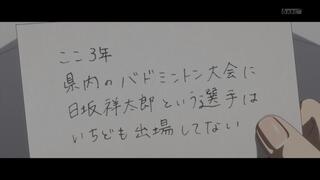 ここ3年
県内のバドミントン大会に
日坂祥太郎という選手は
いちども出場してない